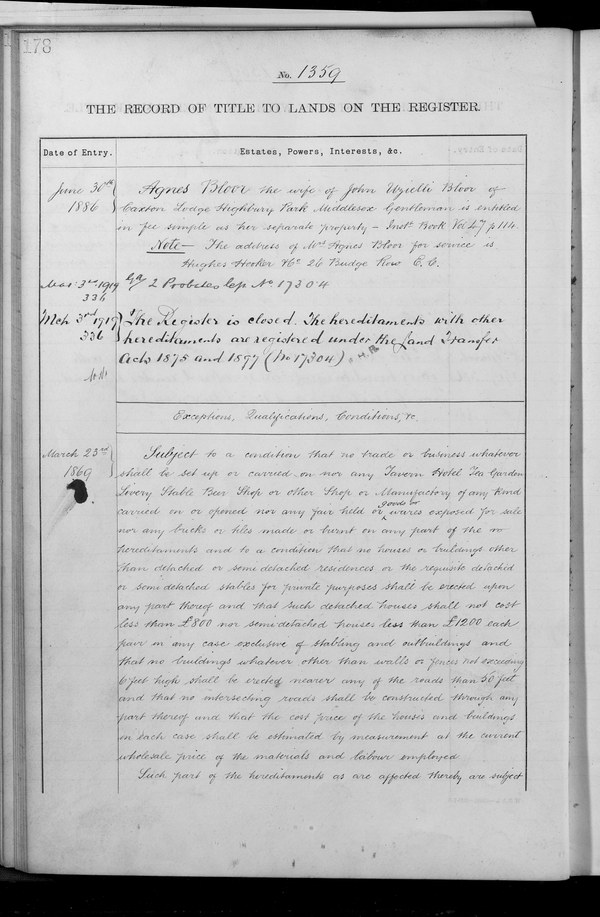 178
No. 1359
THE RECORD OF TITLE TO LANDS ON THE REGISTER.
Date of Entry.
Estates, Powers, Interests, &c.
June 30th 1886
Agnes Bloor the wife of John Uzielli Bloor of
Caxton Lodge Highbury Park Middlesex Gentleman is entitled
in fee simple as her separate property - Inst. Book Vol 47 p 114.
Note - The address of Mrs Agnes Bloor for service is
Hughes Hooker &Co 26 Budge Row E. C.
Mar. 3rd 1919
334
2 Probates No 17304
Mch 3rd 1919
336
The Register is closed. The hereditaments with other
hereditaments are registered under the Land Transfer
Acts 1875 and 1897 (No 17304)
Exceptions, Qualifications, Conditions, &c.
March 23rd
1869
Subject to a condition that no trade or business whatever
shall be set up or carried on nor any Tavern Hotel Tea Garden
Livery Stable Beer Shop or other Shop or Manufactory of any kind
carried on or opened nor any fair held or goods or wares exposed for sale
nor any bricks or tiles made or burnt on any part of the
hereditaments and to a condition that no houses or buildings other
than detached or semi detached residences or the requisite detached
or semi detached stables for private purposes shall be erected upon
any part thereof and that such detached houses shall not cost
less than £800 nor semi detached houses less than £1200 each
pair in any case exclusive of stabling and outbuildings and
that no buildings whatever other than walls or fences not exceeding
6 feet high shall be erected nearer any of the roads than 50 feet
and that no intersecting roads shall be constructed through any
part thereof and that the cost price of the houses and buildings
in each case shall be estimated by measurement at the current
wholesale price of the materials and labour employed
Such part of the hereditaments as are affected thereby are subject